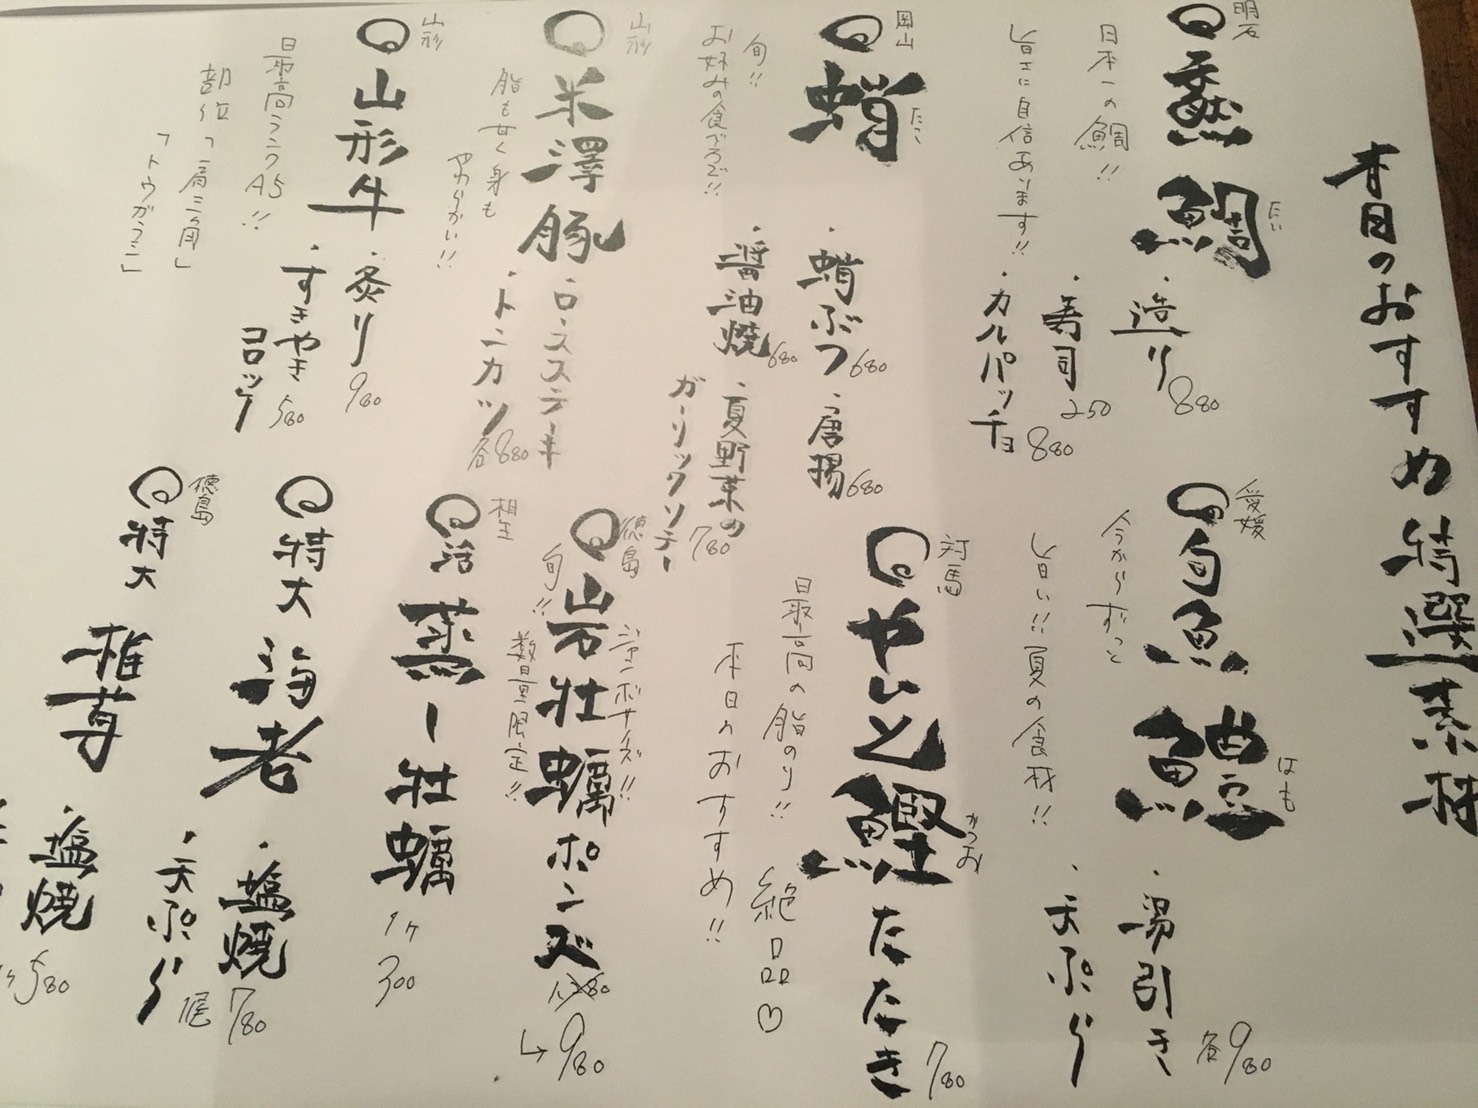 本日のおすすめ特選素材
明石
天然鯛
たい
日本一の鯛!!
旨さに自信あります!!
・造り 880
・寿司 250
・カルパッチョ 880
愛媛
旬魚 鱧
はも
今からずっと
旨い!!夏の食材!!
・湯引き
・天ぷら
各980
岡山
蛸
たこ
旬!!
お好みの食べ方で!!
・蛸ぶつ 680
・唐揚 680
・醤油焼 680
・夏野菜の
ガーリックソテー 780
対馬
やいと鰹たたき 780
かつお
最高の脂のり!! 絶品♡
本日のおすすめ!!
山形
米澤豚
脂も甘く身も
やわらかい!!
・ロースステーキ
・トンカツ
各880
徳島
岩牡蠣ポンズ
ジャンボサイズ!!
旬!! 数量限定!!
1,280
→980
相生
活 蒸し牡蠣
1ヶ
300
山形
山形牛
最高ランクA5!!
部位「肩三角」
「トウガラシ」
・炙り 980
・すきやき
コロッケ 580
特大 海老
・塩焼
・天ぷら
尾 780
徳島
特大 椎茸
・塩焼
580